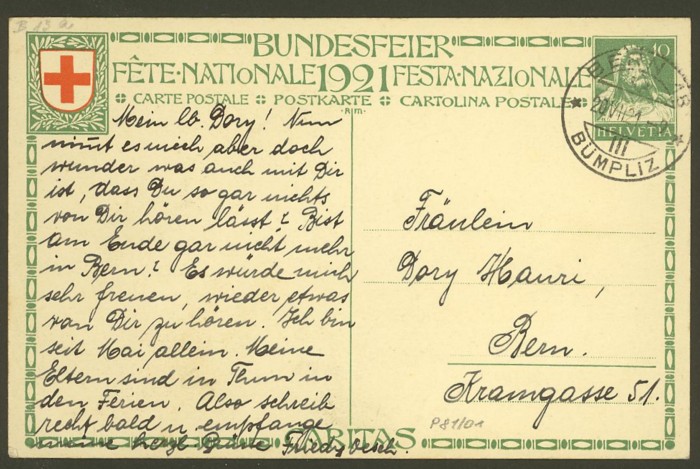 B 13 a
BUNDESFEIER
FÊTE·NATIONALE 1921 FESTA·NAZIONALE
CARTE POSTALE POSTKARTE CARTOLINA POSTALE
R·M·
10
HELVETIA
BERN
20.VII.21
III
BÜMPLIZ
Mein lb. Dory! Nun
nimmt es mich aber doch
wunder was auch mit Dir
ist, dass Du so gar nichts
von Dir hören lässt? Bist
am Ende gar nicht mehr
in Bern? Es würde mich
sehr freuen, wieder etwas
von Dir zu hören. Ich bin
seit Mai allein. Meine
Eltern sind in Thun in
den Ferien. Also schreib
recht bald u empfange
meine herzl Grüsse
Fräulein
Dory Hauri,
Bern.
Kramgasse 51.
P 81/01
CARITAS